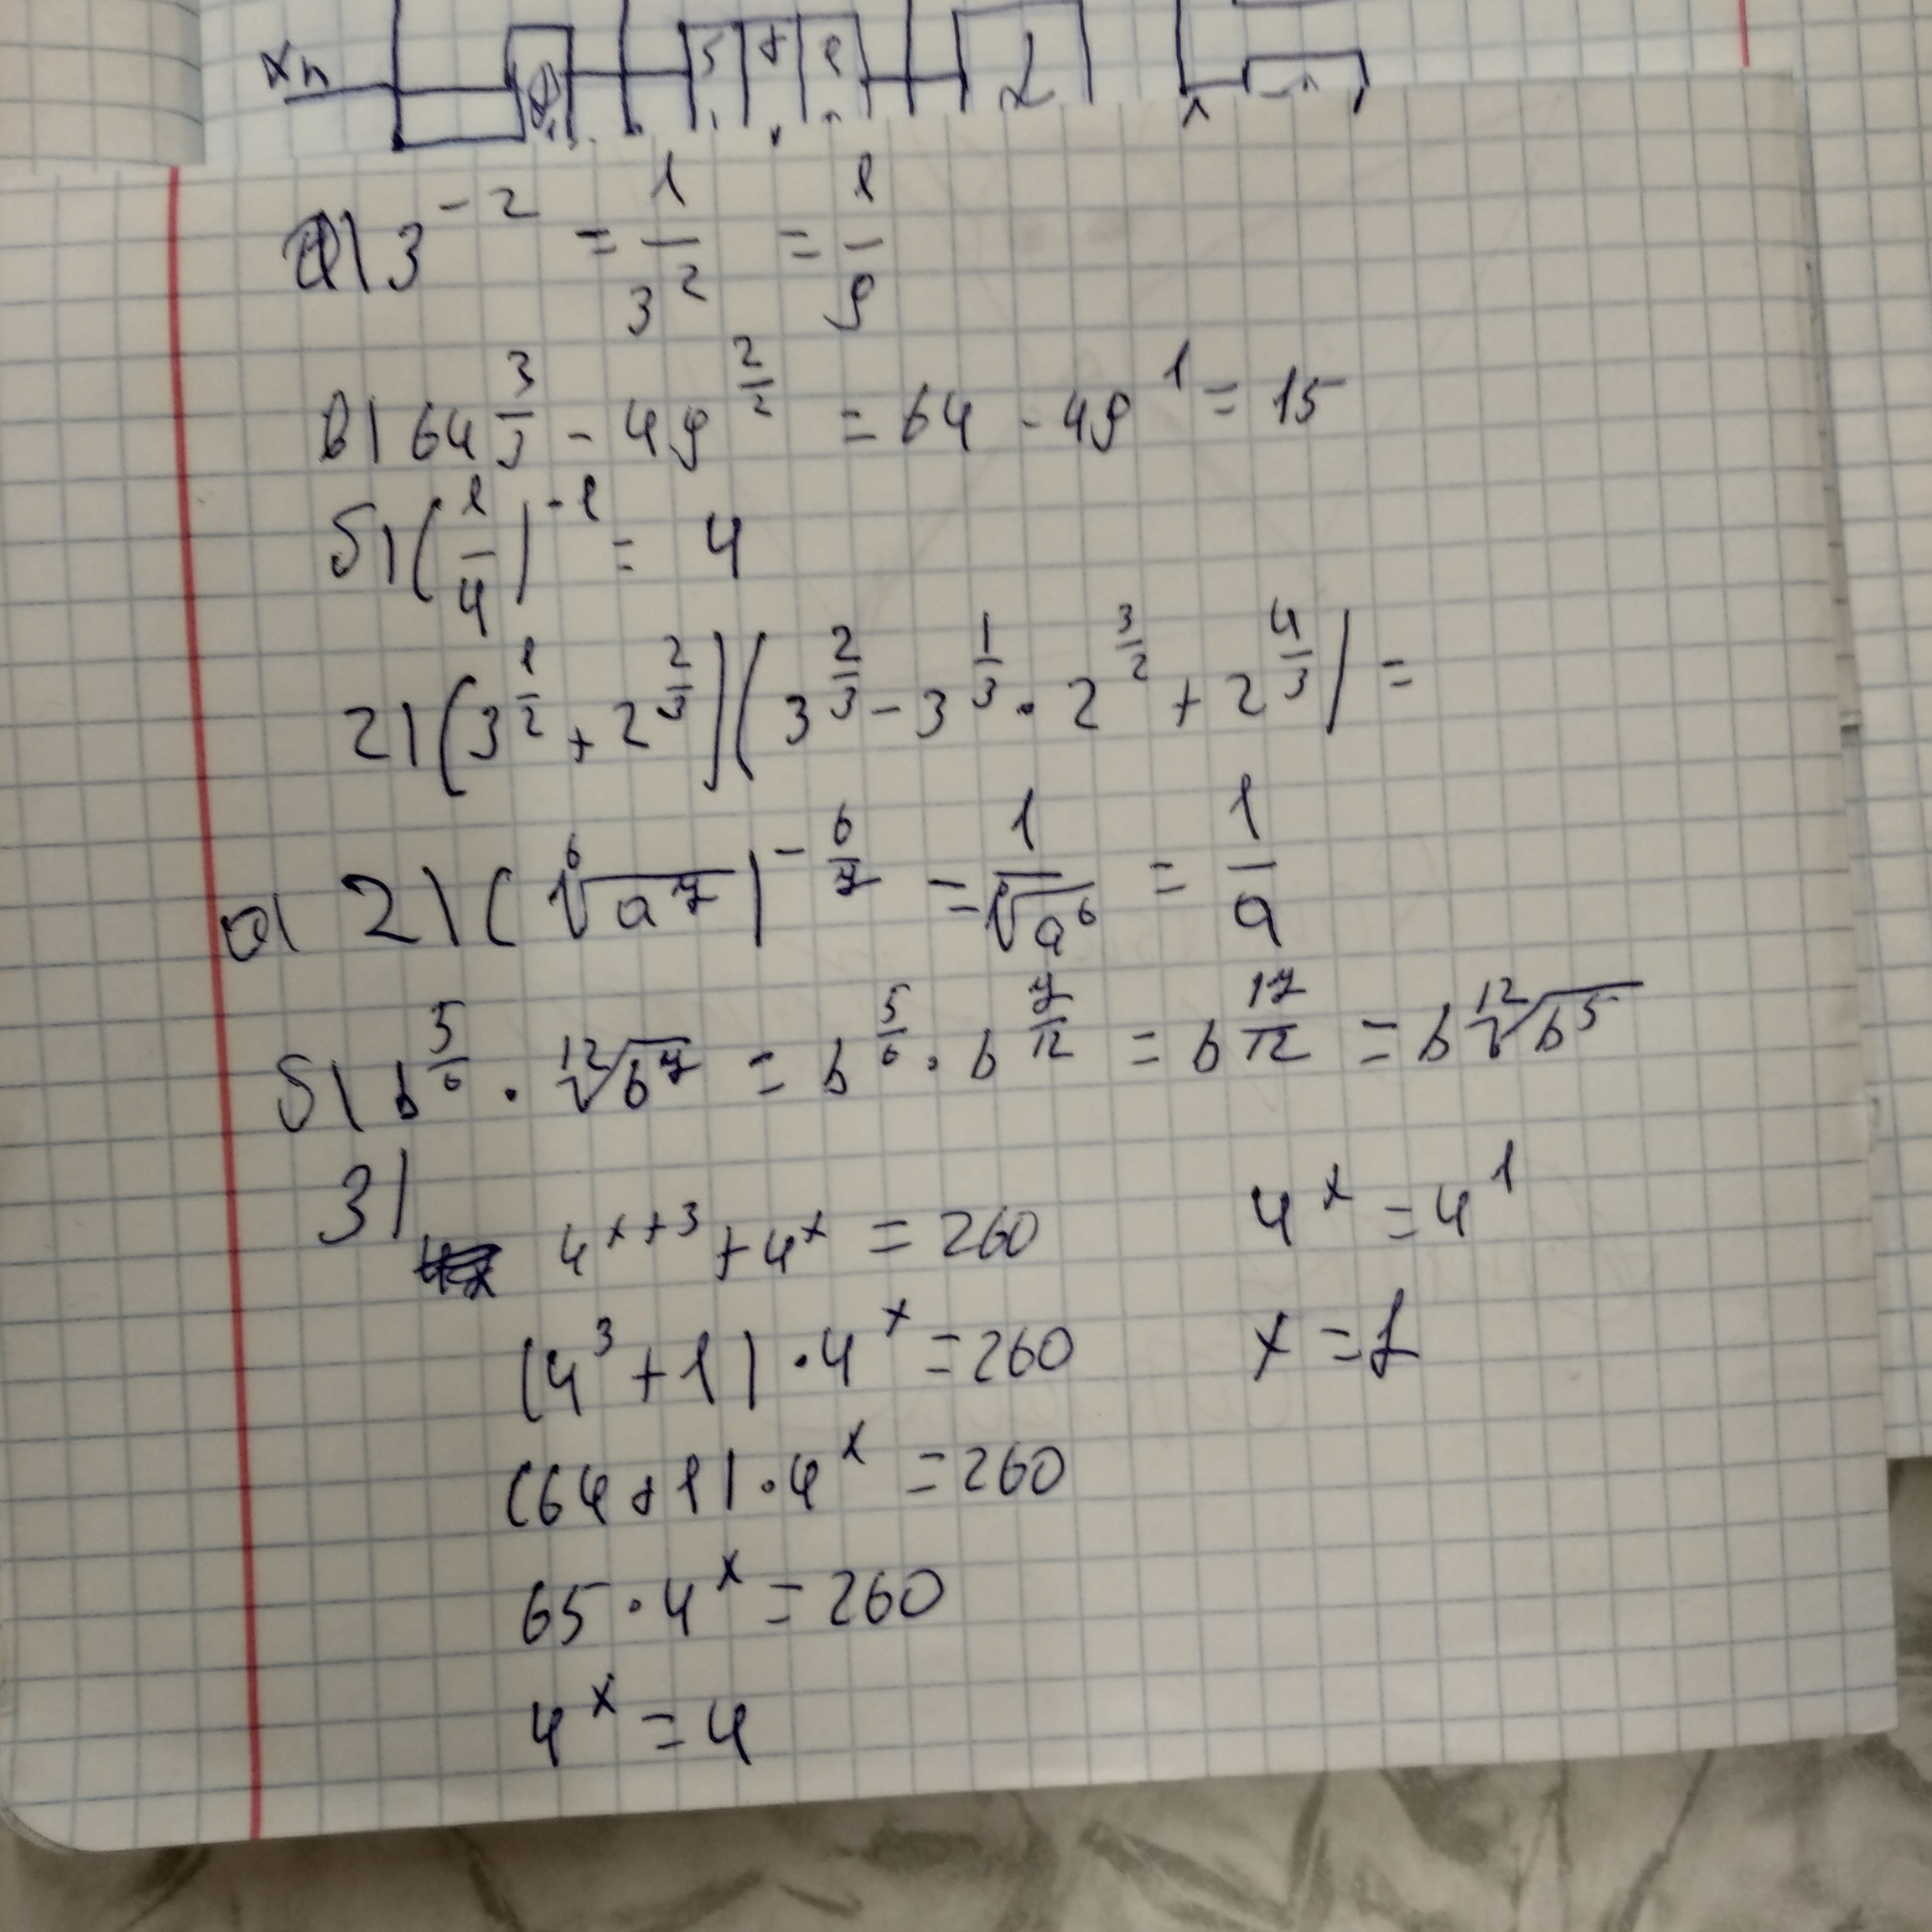 xn 5 8 2 L
а) 3^{-2} = \frac{1}{3^2} = \frac{1}{9}
в) 64^{\frac{3}{3}} - 49^{\frac{2}{2}} = 64 - 49^1 = 15
б) (\frac{1}{4})^{-1} = 4
г) (3^{\frac{1}{2}} + 2^{\frac{2}{3}})(3^{\frac{2}{3}} - 3^{\frac{1}{3}} · 2^{\frac{3}{2}} + 2^{\frac{4}{3}}) =
а) 2) (\sqrt[6]{a^7})^{-\frac{6}{7}} = \frac{1}{\sqrt[6]{a^6}} = \frac{1}{a}
б) b^{\frac{5}{6}} · \sqrt[12]{b^7} = b^{\frac{5}{6}} · b^{\frac{7}{12}} = b^{\frac{17}{12}} = b\sqrt[12]{b^5}
3) 4^{x+3} + 4^x = 260
(4^3 + 1) · 4^x = 260
(64 + 1) · 4^x = 260
65 · 4^x = 260
4^x = 4
4^x = 4^1
x = 1